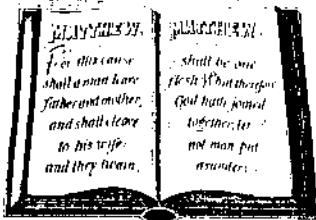 MATTHEW.
For this cause
shall a man leave
father and mother,
and shall cleave
to his wife:
and they twain,
MATTHEW.
shall be one
flesh what therefor
God hath joined
together, let
not man put
asunder.